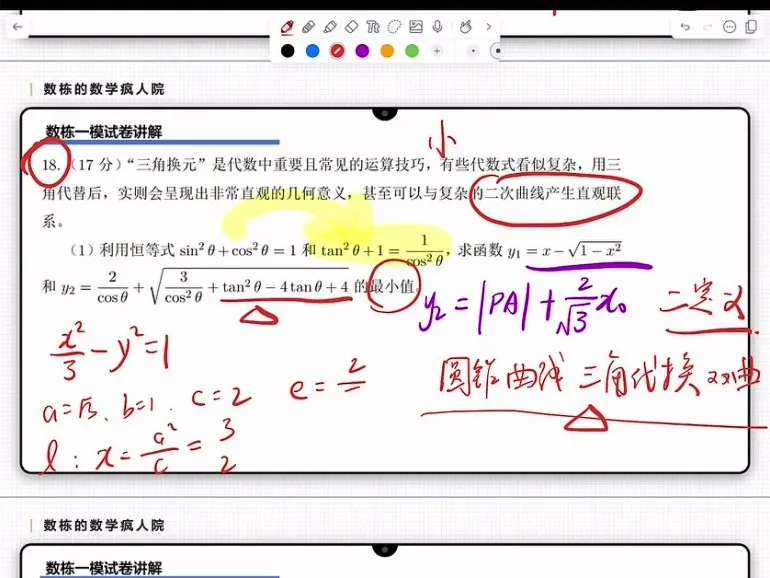 数栋的数学疯人院
数栋一模试卷讲解
小
18.（17 分）“三角换元”是代数中重要且常见的运算技巧，有些代数式看似复杂，用三
角代替后，实则会呈现出非常直观的几何意义，甚至可以与复杂的二次曲线产生直观联
系。
（1）利用恒等式 sin²θ+cos²θ=1 和 tan²θ+1=1/cos²θ，求函数 y₁=x−√(1−x²)
和 y₂=2/cosθ+√(3/cos²θ+tan²θ−4tanθ+4) 的最小值。
y₂=|PA|+2/√3 x₀ 二定义
x²/3−y²=1
圆锥曲线 三角代换 双曲
a=√3、b=1、c=2 e=2/
l：x=a²/c=3/2
数栋的数学疯人院
数栋一模试卷讲解